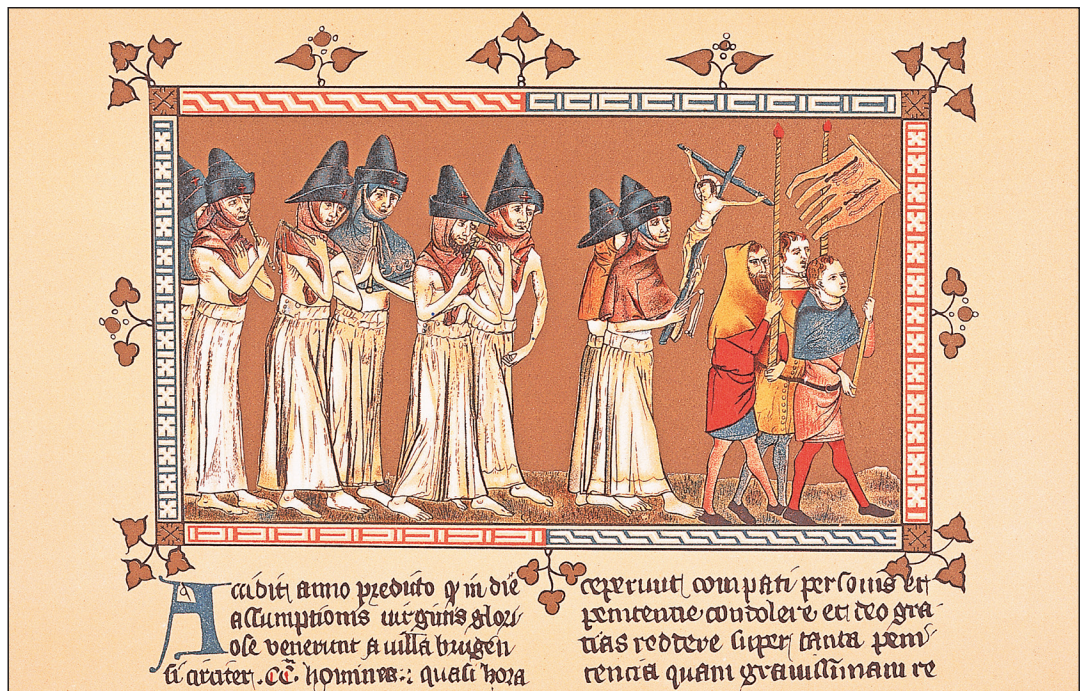 Accidit anno predicto q in die
assumptionis uirginis glori
ose venerunt a villa brugen
si circiter .CC. homines: quasi hora
ceperunt compati personis et
penitencie condolere et deo gra-
tias reddere super tanta peni
tencia quam grauissimam re